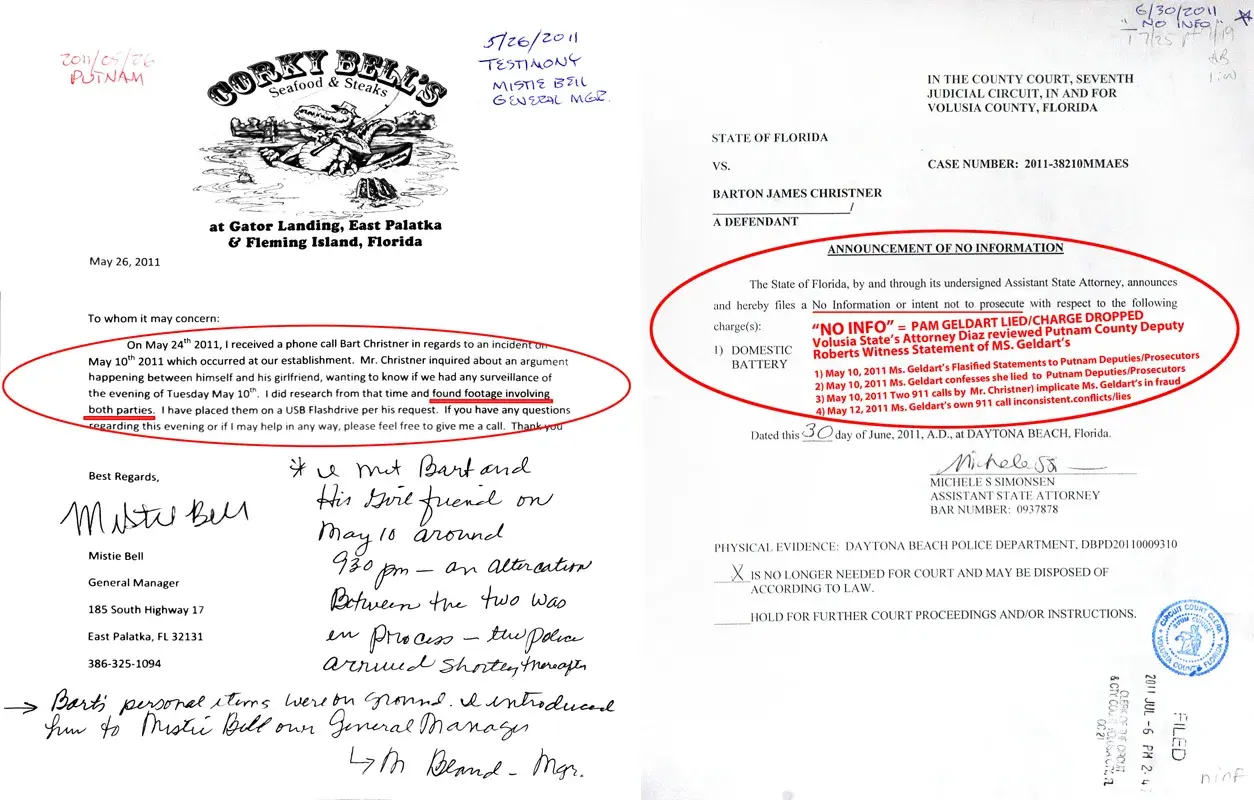 2011/05/26
PUTNAM
5/26/2011
TESTIMONY
MISTIE BELL
GENERAL MGR.
CORKY BELL'S
Seafood & Steaks
at Gator Landing, East Palatka
& Fleming Island, Florida
May 26, 2011
To whom it may concern:
On May 24th 2011, I received a phone call Bart Christner in regards to an incident on
May 10th 2011 which occurred at our establishment. Mr. Christner inquired about an argument
happening between himself and his girlfriend, wanting to know if we had any surveillance of
the evening of Tuesday May 10th. I did research from that time and found footage involving
both parties. I have placed them on a USB Flashdrive per his request. If you have any questions
regarding this evening or if I may help in any way, please feel free to give me a call. Thank you
Best Regards,
Mistie Bell
Mistie Bell
General Manager
185 South Highway 17
East Palatka, FL 32131
386-325-1094
* I met Bart and
His Girl friend on
May 10 around
930 pm - an altercation
Between the two was
in process - the police
arrived shortly thereafter
→ Bart's personal items were on ground. I introduced
him to Mistie Bell our General Manager
↳ M Bland - Mgr.
6/30/2011
"NO INFO"
IN THE COUNTY COURT, SEVENTH
JUDICIAL CIRCUIT, IN AND FOR
VOLUSIA COUNTY, FLORIDA
STATE OF FLORIDA
VS.
CASE NUMBER: 2011-38210MMAES
BARTON JAMES CHRISTNER
/
A DEFENDANT
ANNOUNCEMENT OF NO INFORMATION
The State of Florida, by and through its undersigned Assistant State Attorney, announces
and hereby files a No Information or intent not to prosecute with respect to the following
charge(s):
1) DOMESTIC
BATTERY
"NO INFO" = PAM GELDART LIED/CHARGE DROPPED
Volusia State's Attorney Diaz reviewed Putnam County Deputy
Roberts Witness Statement of MS. Geldart's
1) May 10, 2011 Ms. Geldart's Flasified Statements to Putnam Deputies/Prosecutors
2) May 10, 2011 Ms. Geldart confesses she lied to Putnam Deputies/Prosecutors
3) May 10, 2011 Two 911 calls by Mr. Christner) implicate Ms. Geldart's in fraud
4) May 12, 2011 Ms. Geldart's own 911 call inconsistent.conflicts/lies
Dated this 30 day of June, 2011, A.D., at DAYTONA BEACH, Florida.
MICHELE S SIMONSEN
ASSISTANT STATE ATTORNEY
BAR NUMBER: 0937878
PHYSICAL EVIDENCE: DAYTONA BEACH POLICE DEPARTMENT, DBPD20110009310
X IS NO LONGER NEEDED FOR COURT AND MAY BE DISPOSED OF
ACCORDING TO LAW.
HOLD FOR FURTHER COURT PROCEEDINGS AND/OR INSTRUCTIONS.
CIRCUIT COURT CLERK
VOLUSIA COUNTY FLORIDA
FILED
2011 JUL -6 PM 2:4
CLERK OF THE CIRCUIT
& CTY COURT
ninf